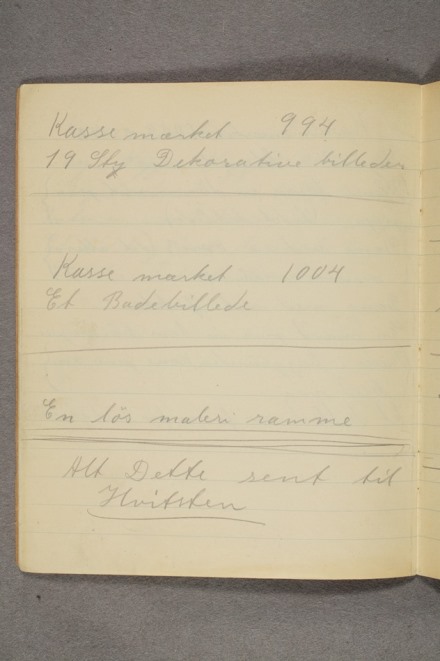 Kasse mærket 994
19 Sty Dekorative billeder
Kasse mærket 1004
Et Badebillede
En lös maleri ramme
Alt Dette sent til
Hvitsten